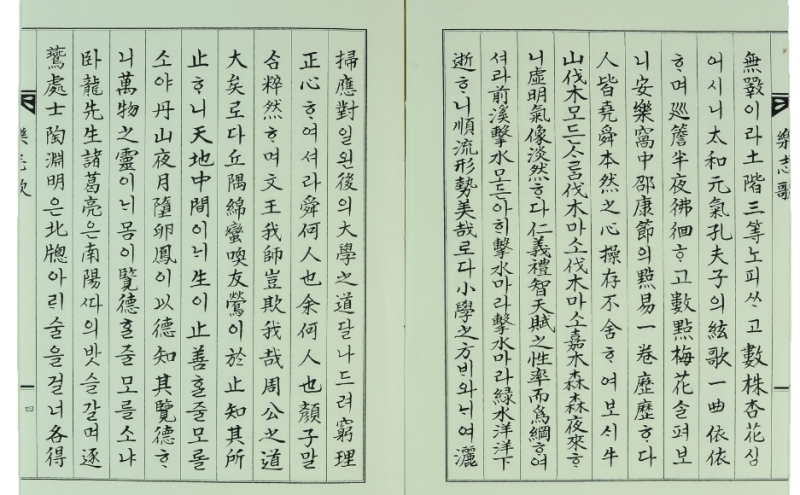 無斁이라土階三等노피ᄡᅳ고數株杏花심
어시니太和元氣孔夫子의絃歌一曲依依
ᄒᆞ며巡簷半夜彿徊ᄒᆞ고數點梅花슬펴보
니安樂窩中邵康節의點易一卷歷歷ᄒᆞ다
人皆堯舜本然之心操存不舍ᄒᆞ여보시牛
山伐木모든ᄉᆞᄅᆞᆷ伐木마소伐木마소嘉木森森夜來ᄒᆞ
니虛明氣像淡然ᄒᆞ다仁義禮智天賦之性率而爲綱ᄒᆞ여
셔라前溪擊水모든아희擊水마라擊水마라緑水洋洋下
逝ᄒᆞ니順流形勢美哉로다小學之方ᄇᆡ와ᄂᆡ여灑
掃應對일왼後의大學之道달나드려窮理
正心ᄒᆞ여셔라舜何人也余何人也顔子말
솜粹然ᄒᆞ며文王我師豈欺我哉周公之道
大矣로다丘隅綿蠻喚友鶯이於止知其所
止ᄒᆞ니天地中間이ᄂᆡ生이止善ᄒᆞᆯ줄모를
소냐丹山夜月墮卵鳳이以德知其覽德ᄒᆞ
니萬物之靈이ᄂᆡ몸이覽德ᄒᆞᆯ줄모를소냐
卧龍先生諸葛亮은南陽ᄯᅡ의밧슬갈며逐
鷺處士陶淵明은北牕아ᄅᆡ술을걸너各得
樂志歌
樂志歌
四